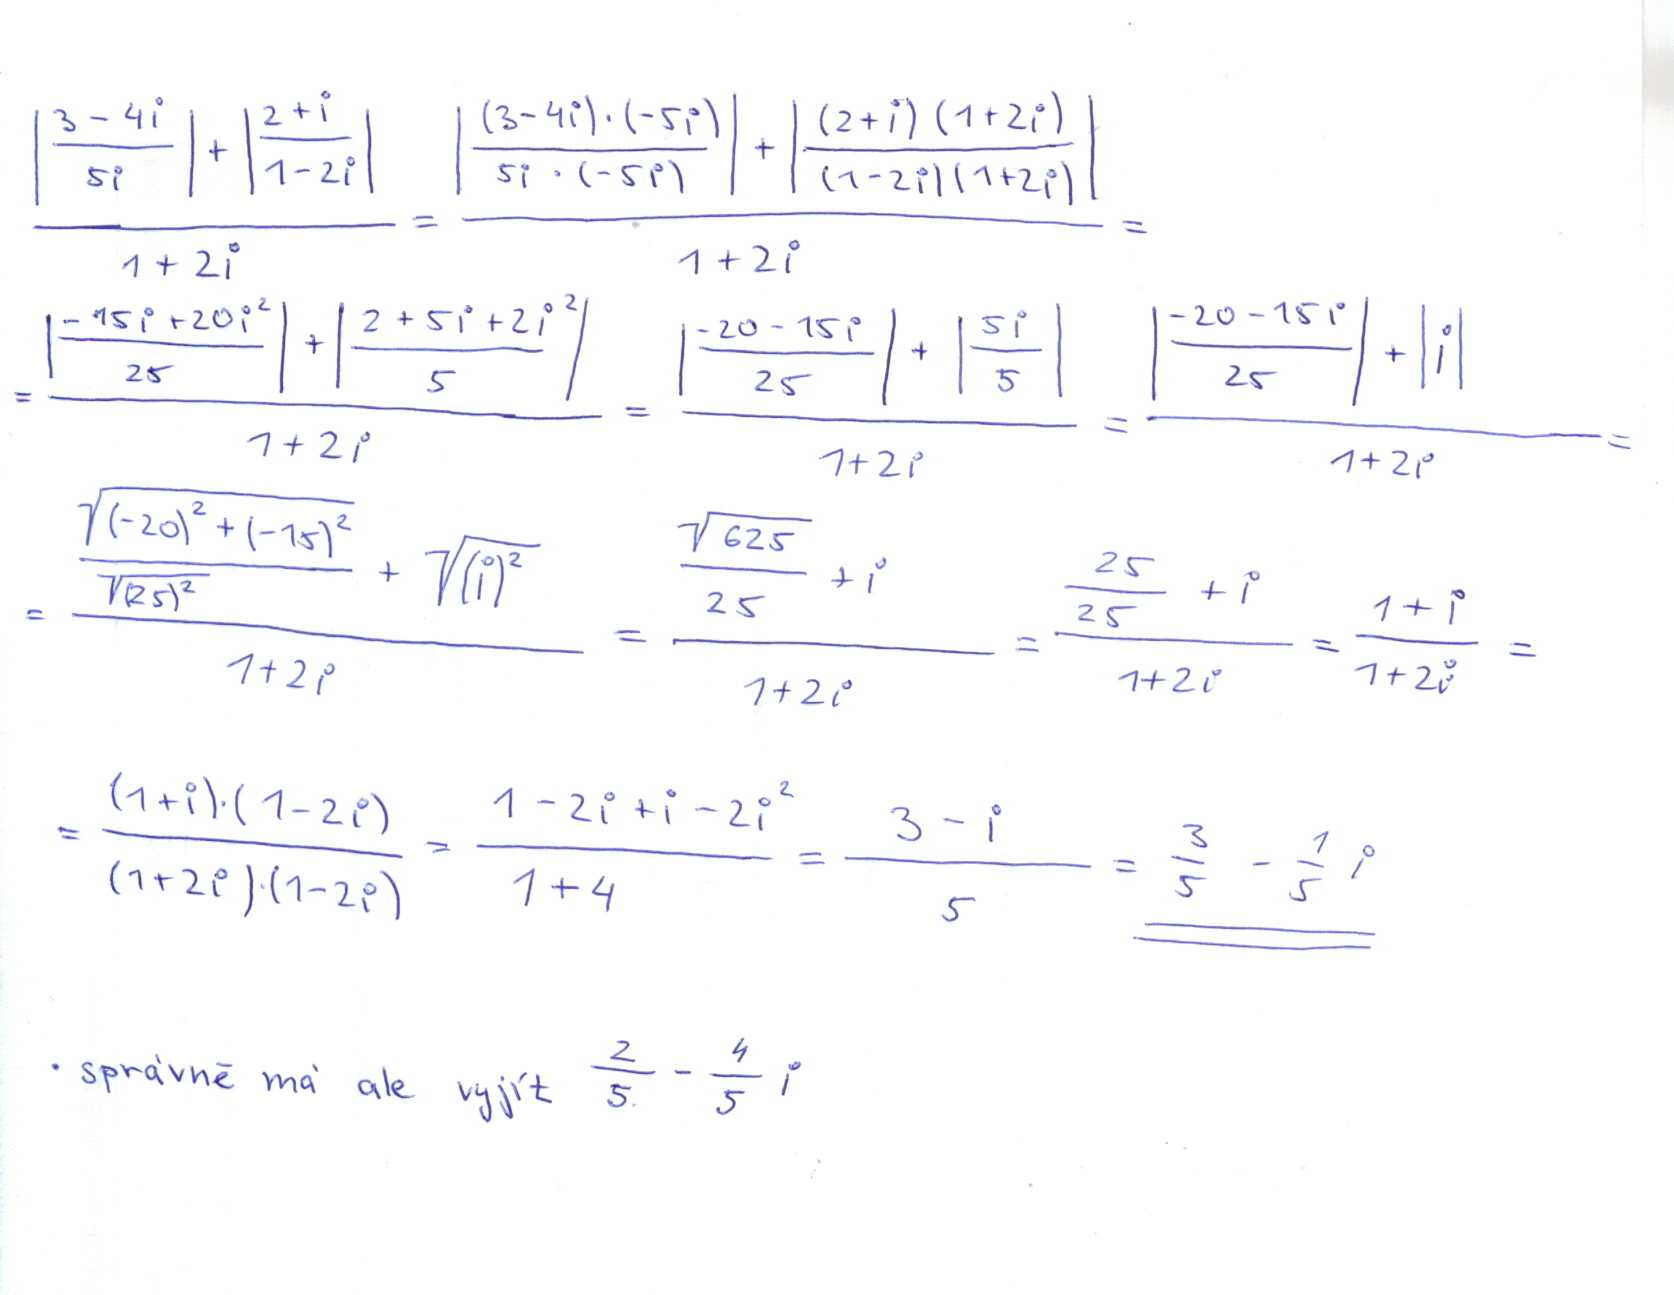 |(3-4i)/(5i)| + |(2+i)/(1-2i)| / (1+2i) = |((3-4i)·(-5i))/(5i·(-5i))| + |((2+i)(1+2i))/((1-2i)(1+2i))| / (1+2i) =
= |(-15i+20i²)/25| + |(2+5i+2i²)/5| / (1+2i) = |(-20-15i)/25| + |5i/5| / (1+2i) = |(-20-15i)/25| + |i| / (1+2i) =
= √((-20)²+(-15)²)/√(25)² + √(i)² / (1+2i) = √625/25 + i / (1+2i) = 25/25 + i / (1+2i) = (1+i)/(1+2i) =
= ((1+i)·(1-2i))/((1+2i)·(1-2i)) = (1-2i+i-2i²)/(1+4) = (3-i)/5 = 3/5 - 1/5 i
· správně má ale vyjít 2/5 - 4/5 i